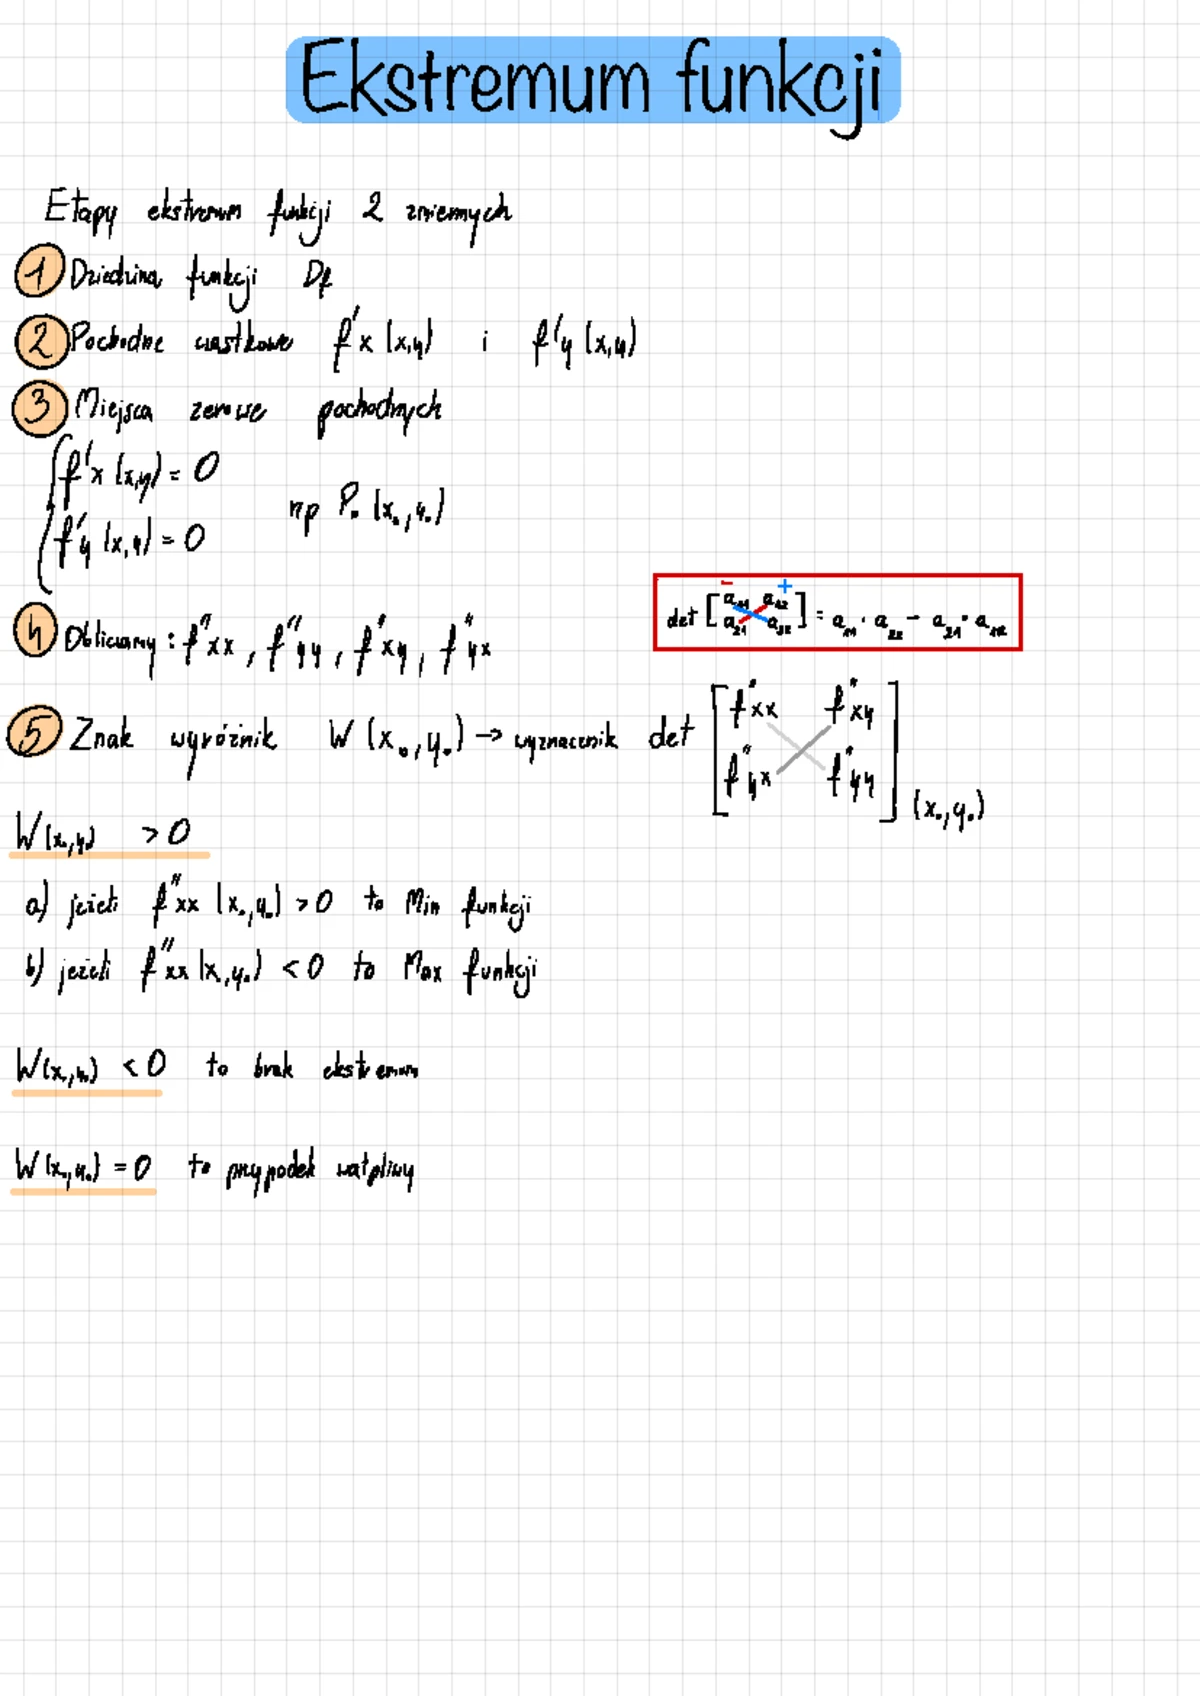 Ekstremum funkcji
Etapy ekstremum funkcji 2 zmiennych
1 Dziedzina funkcji Df
2 Pochodne cząstkowe f'x (x,y) i f'y (x,y)
3 Miejsca zerowe pochodnych
f'x (x,y) = 0
f'y (x,y) = 0
np P₀ (x₀, y₀)
det [a₁₁ a₁₂ a₂₁ a₂₂] = a₁₁ · a₂₂ - a₂₁ · a₁₂
- +
4 Obliczamy : f"xx , f"yy , f"xy , f"yx
5 Znak wyróżnik W (x₀, y₀) → wyznacznik det [f"xx f"xy
f"yx f"yy] (x₀, y₀)
W(x₀,y₀) > 0
a) jeżeli f"xx (x₀,y₀) > 0 to Min funkcji
b) jeżeli f"xx (x,y₀) < 0 to Max funkcji
W(x₀,y₀) < 0 to brak ekstremum
W(x₀,y₀) = 0 to przypadek wątpliwy